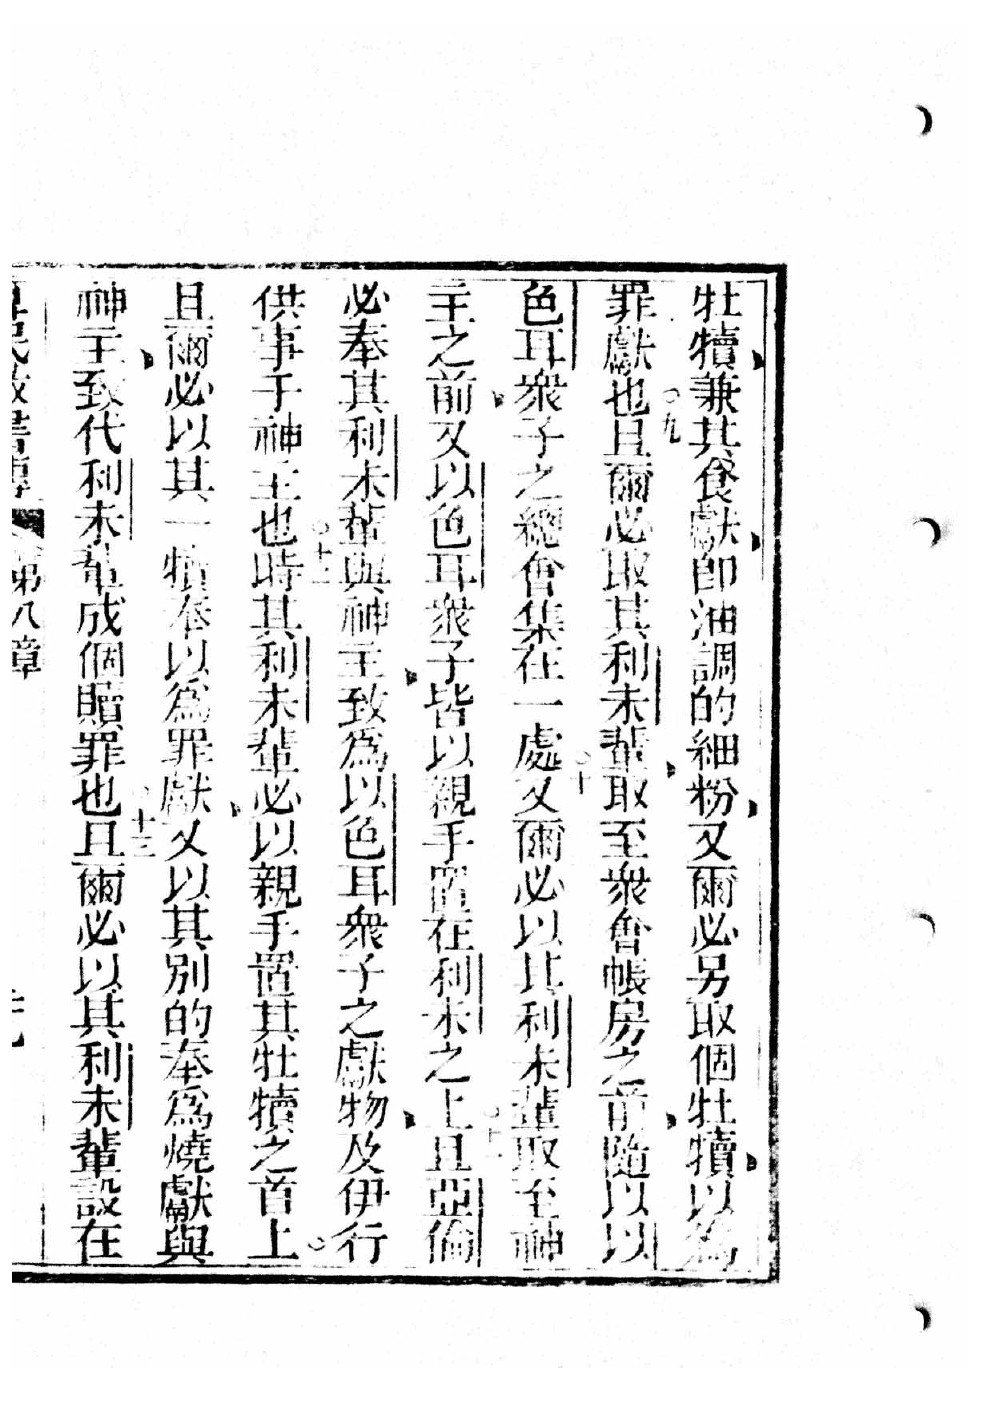 牡犢兼其食獻即油調的細粉又爾必另取個牡犢以為
罪獻也○九且爾必取其利未輩取至衆會帳房之前隨以以
色耳衆子之總會集在一處○十又爾必以其利未輩取至神
主之前又以色耳衆子皆以親手置在利未之上○十一且亞倫
必奉其利未輩與神主致為以色耳衆子之獻物及伊行
供事于神主也○十二時其利未輩必以親手置其牡犢之首上
且爾必以其一犢奉以為罪獻又以其別的奉為燒獻與
神主致代利未輩成個贖罪也○十三且爾必以其利未輩設在
第八章